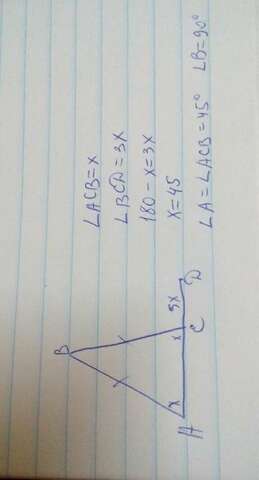 ∠ACB=x
∠BCD=3x
180-x=3x
x=45
∠A=∠ACB=45° ∠B=90°
B
x
x
3x
A
C
D